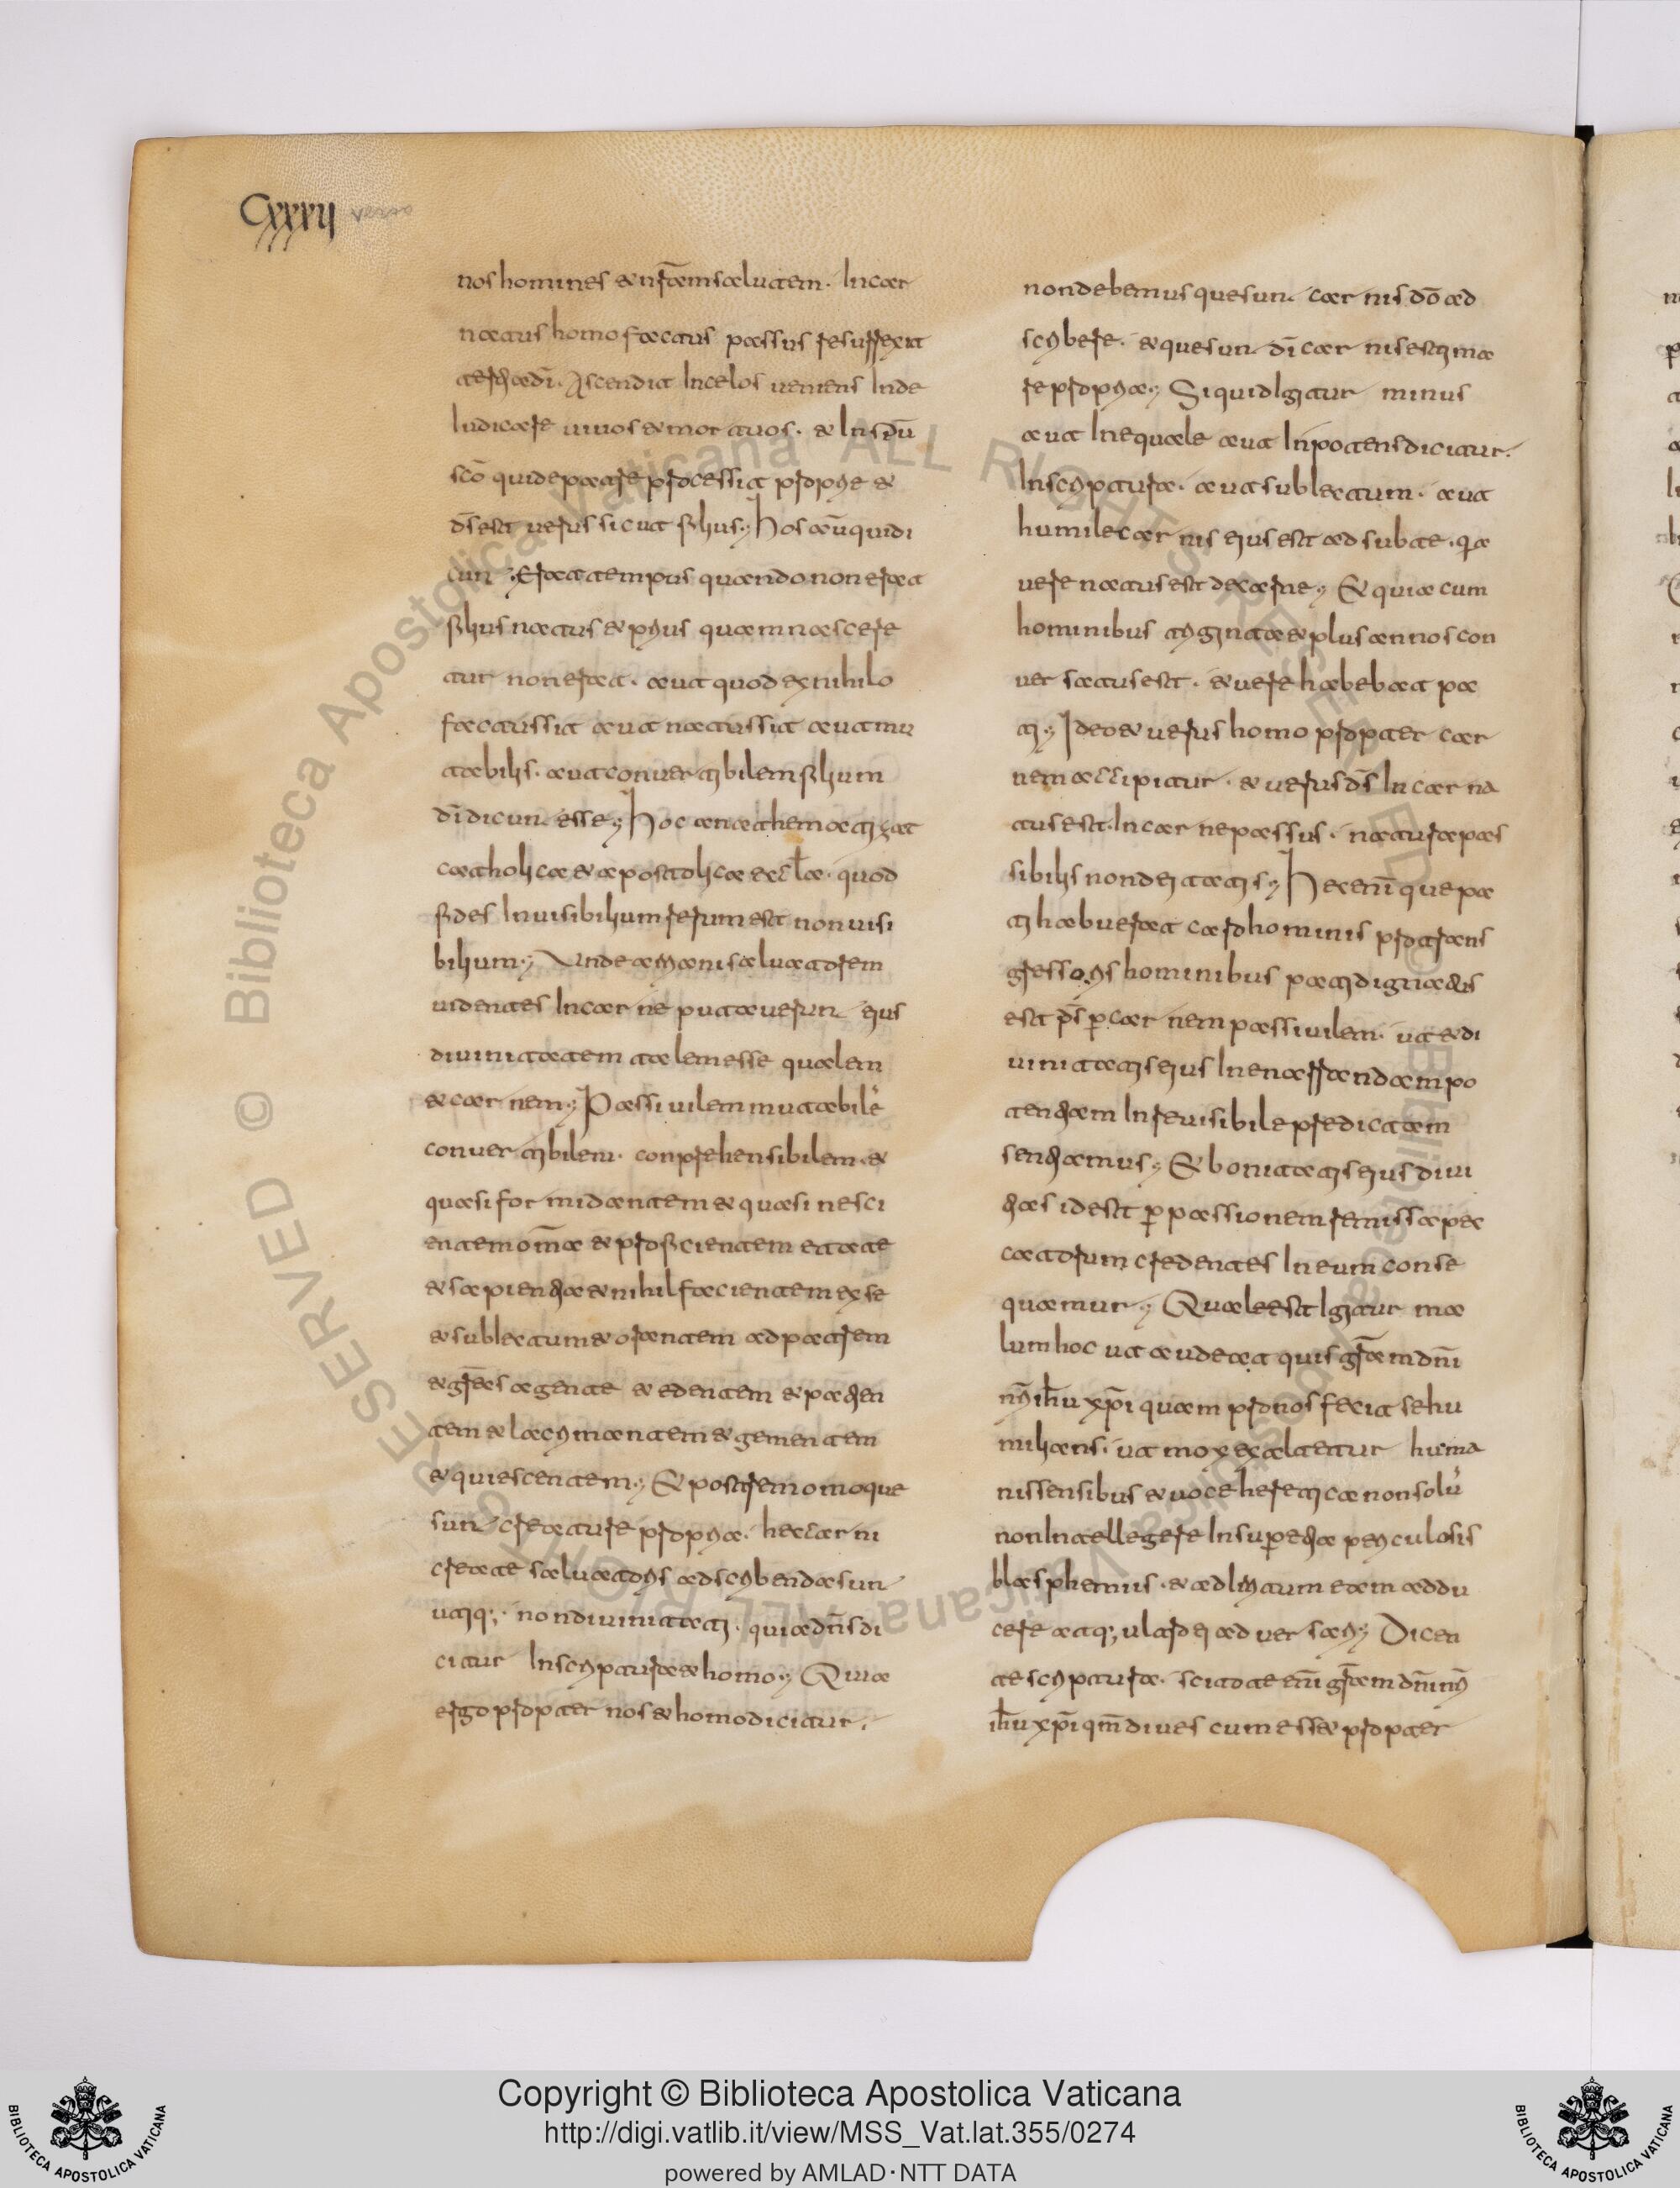 Cxxxij verso
nos homines & nr̄am salutem. Incar
natus homo factus passus resurrexit
tertia di. Ascendit In celos veniens Inde
Iudicare vivos & mortuos. & In sp̄u
sc̄o qui de patre processit propriae &
d̄s est verus sicut filius. Hos aūt qui di
cunt. Erat tempus quando non erat
filius natus & prius quam nascere
tur non erat. aut quod ex nihilo
factus sit aut natus sit aut mu
tabilis. aut convertibilem filium
dī dicunt esse. Hoc anathematizat
catholica & apostolica eccl̄a. quod
fides Invisibilium rerum est non visi
bilium. Unde arriani salvatorem
videntes In carne putaverunt ejus
divinitatem talem esse qualem
& carnem. Passivilem mutabilē
convertibilem. conprehensibilem. &
quasi formidantem & quasi nesci
entem om̄a & proficientem etate
& sapientia & nihil facientem ex se
& subiectum & orantem ad patrem
& gr̄as agente & edentem & patien
tem & lacrimantem & gementem
& quiescentem. & postremo mo que
sunt creature propria. hec carni
create salvatoris adscribenda sunt
utiq;. non divinitati. qui ad n̄s di
citur In scriptura & homo. Quia
ergo propter nos & homo dicitur.
non debemus que sunt carnis dō ad
scribere. & que sunt dī carnis estima
re propria. Si quid Igitur minus
aut Inequale aut Inpotens dicitur.
In scriptura. aut subiectum. aut
humile carnis ejus est ad subte. qa
vere natus est de carne. & quia cum
hominibus triginta & plus annos con
versatus est. & vere habebat pa
ti. Ideo & verus homo propter car
nem accipitur. & verus d̄s In car na
tus est. In carne passus. natura pas
sibilis non deitatis. Hec enī que pa
ti habuerat caro hominis pro trans
gressoris hominibus pati dignatus
est d̄s p̄ carnem passivilem. ut & di
vinitatis ejus Inenarrandam po
tentiam Inrevisibile predicatam
sentiamus. & bonitatis ejus divi
tias id est p̄ passionem remissa pec
catorum credentes In eum conse
quamur. Quale est Igitur ma
lum hoc ut audeat quis gr̄am dn̄i
nr̄i ih̄u xp̄i quam pro nos fecit se hu
milians. ut mox exaltetur huma
nis sensibus & voce heretica non solū
non Intellegere Insuper & ea periculosis
blasphemiis. & ad Irritum etiam addu
cere atq; ultro ei adversari. Dicen
te scriptura. scitote enī gr̄am dn̄i nr̄i
ih̄u xp̄i qm̄ dives cum ess& propter
Copyright © Biblioteca Apostolica Vaticana
http://digi.vatlib.it/view/MSS_Vat.lat.355/0274
powered by AMLAD·NTT DATA
BIBLIOTECA APOSTOLICA VATICANA
BIBLIOTECA APOSTOLICA VATICANA